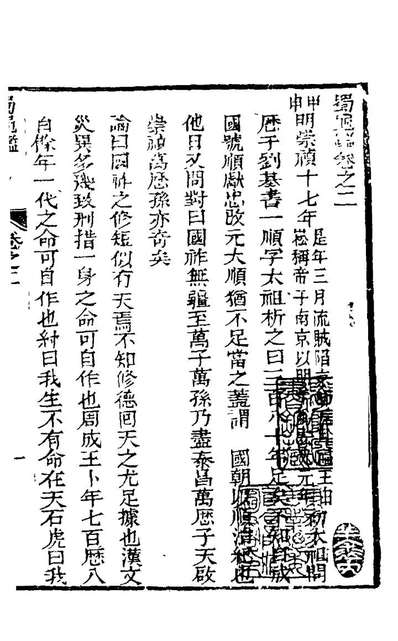 蜀龜鑑卷之二
甲申明崇禎十七年是年三月流賊陷京師王由崧稱帝于南京以明元年初太祖問
歷于劉基書一順字太祖析之曰三百八十年足矣不知自成
國號順獻忠改元大順猶不足當之蓋謂 國朝以順治繼也
他日又問對曰國祚無疆至萬子萬孫乃盡泰昌萬歷子天啟
崇禎萬歷孫亦奇矣
論曰國祚之修短似有天焉不知修德回天之尤足據也漢文
災異多幾致刑措一身之命可自作也周成王卜年七百歷八
百餘年一代之命可自作也紂曰我生不有命在天石虎曰我
蜀龜鑑 卷之二 一